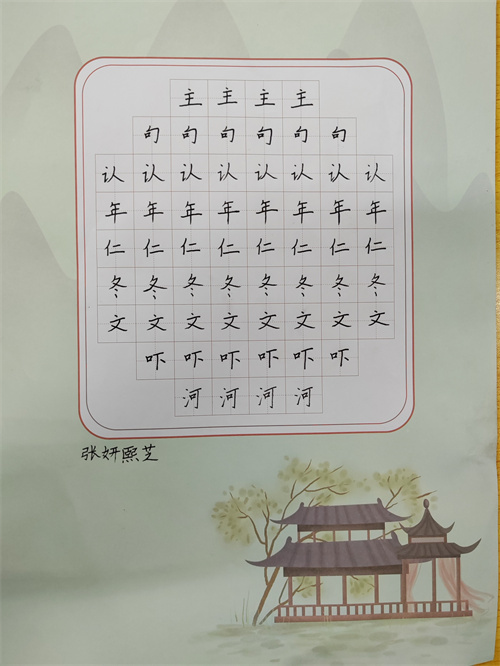 主主主主
句句句句句句
认认认认认认认认
年年年年年年年年
仁仁仁仁仁仁仁仁
冬冬冬冬冬冬冬冬
文文文文文文文文
吓吓吓吓吓吓
河河河河
张妍熙芝